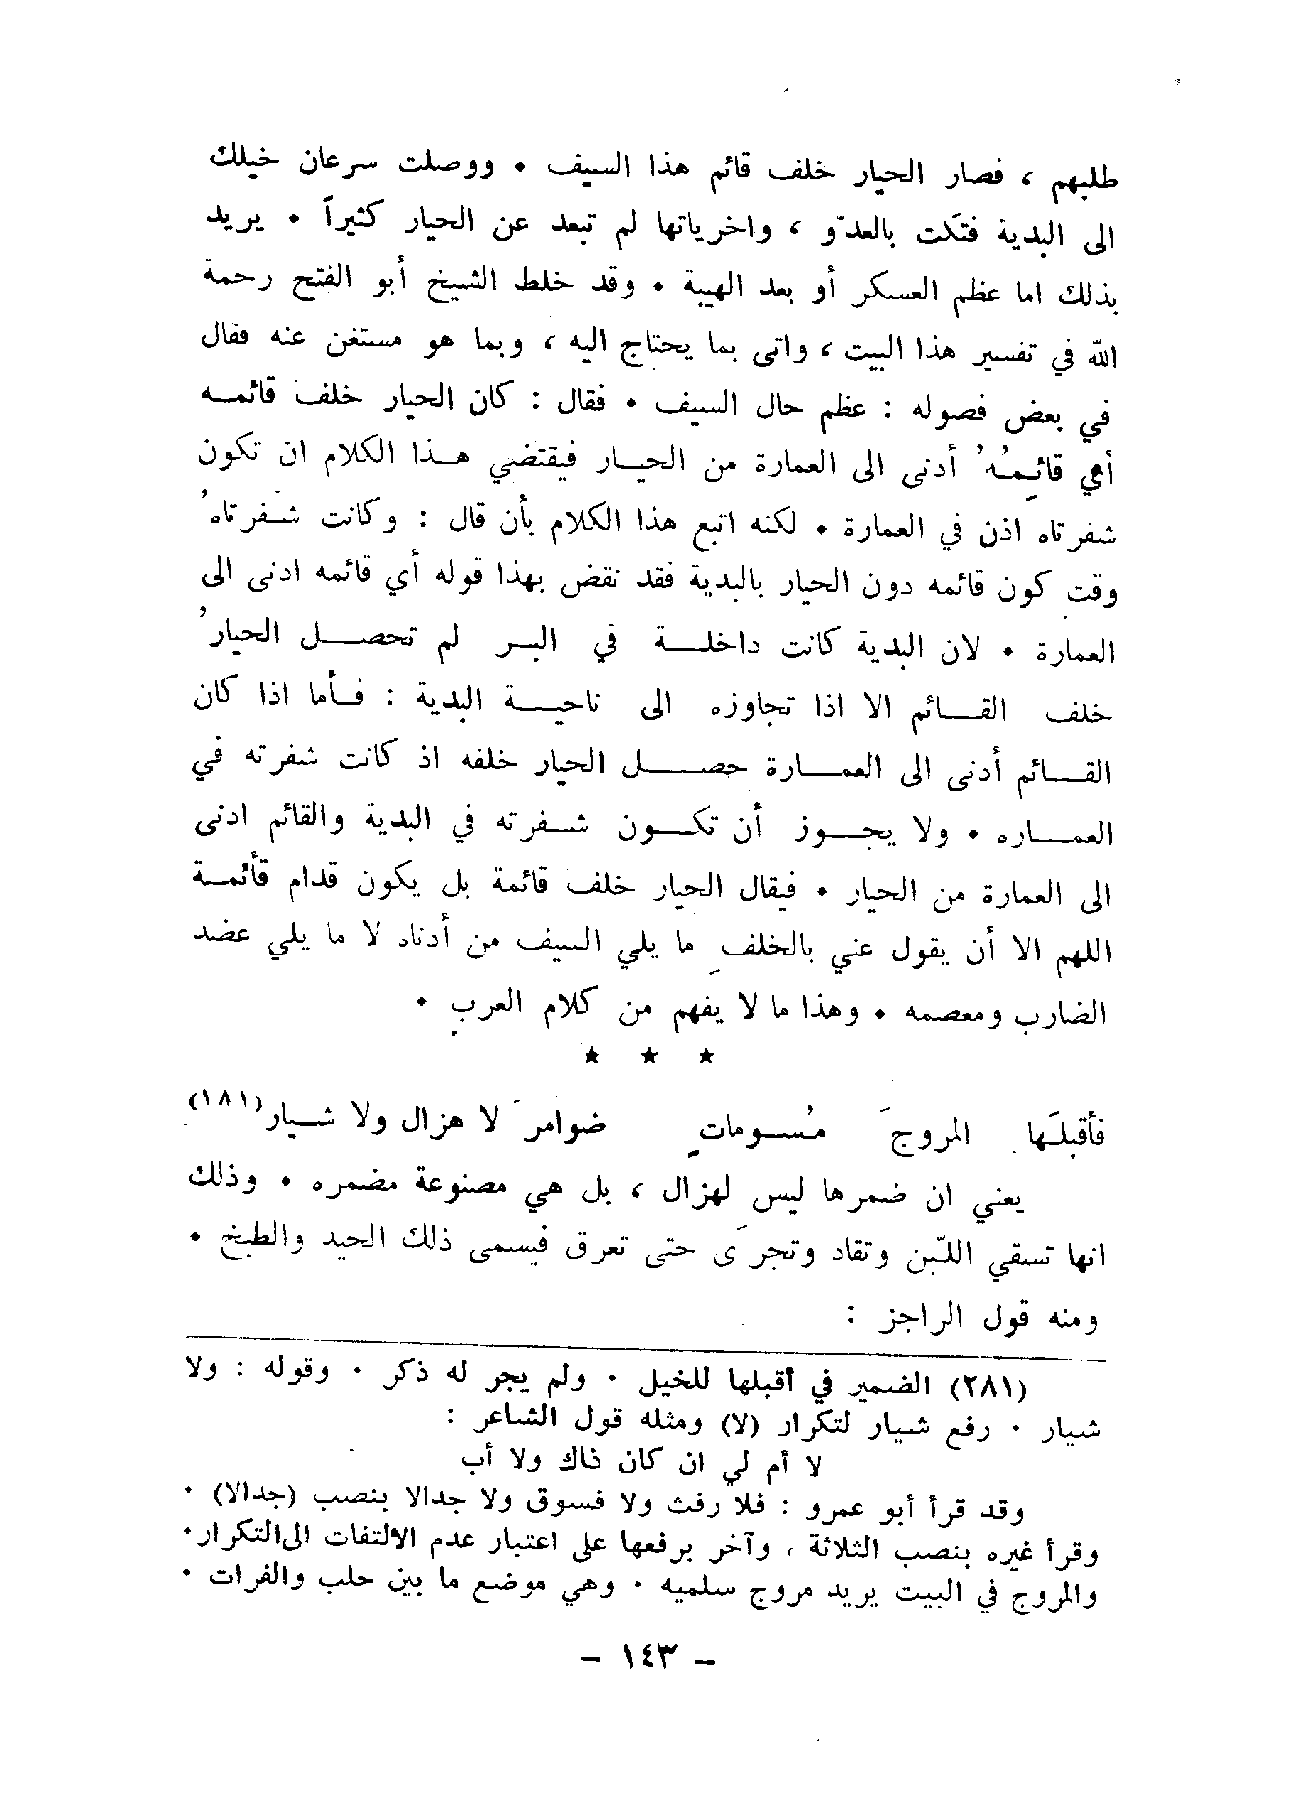 طلبهم ، فصار الحيار خلف قائم هذا السيف • ووصلت سرعان خيلك
الى البدية فتكت بالعدو ، واخرياتها لم تبعد عن الحيار كثيراً • يريد
بذلك اما عظم العسكر أو بعد الهيبة • وقد خلط الشيخ أبو الفتح رحمة
الله في تفسير هذا البيت ، واتى بما يحتاج اليه ، وبما هو مستغن عنه فقال
في بعض فصوله : عظم حال السيف • فقال : كان الحيار خلف قائمه
أي قائمِهُ أدنى الى العمارة من الحيار فيقتضي هذا الكلام ان تكون
شفرتاه اذن في العمارة • لكنه اتبع هذا الكلام بأن قال : وكانت شفرتاهُ
وقت كون قائمه دون الحيار بالبدية فقد نقض بهذا قوله أي قائمه ادنى الى
العمارة • لان البدية كانت داخلة في البر لم تحصل الحيارُ
خلف القائم الا اذا تجاوزه الى ناحية البدية : فأما اذا كان
القائم أدنى الى العمارة حصل الحيار خلفه اذ كانت شفرته في
العماره • ولا يجوز أن تكون شفرته في البدية والقائم ادنى
الى العمارة من الحيار • فيقال الحيار خلف قائمة بل يكون قدام قأئمة
اللهم الا أن يقول عني بالخلفِ ما يلي السيف من أدناه لا ما يلي عضد
الضارب ومعصمه • وهذا ما لا يفهم من كلام العرب •
★ ★ ★
فأقبلَها المروجَ مُسومات ضوامرَ لا هزال ولا شيار(١٨١)
يعني ان ضمرها ليس لهزال ، بل هي مصنوعة مضمره • وذلك
انها تسقي اللبّن وتقاد وتجرَى حتى تعرق فيسمى ذلك الحيد والطبخ •
ومنه قول الراجز :
(٢٨١) الضمير في أقبلها للخيل • ولم يجر له ذكر • وقوله : ولا
شيار • رفع شيار لتكرار (لا) ومثله قول الشاعر :
لا أم لي ان كان ذاك ولا أب
وقد قرأ أبو عمرو : فلا رفث ولا فسوق ولا جدالا بنصب (جدالا) •
وقرأ غيره بنصب الثلاثة ، وآخر برفعها على اعتبار عدم الالتفات الى التكرار •
والمروج في البيت يريد مروج سلميه • وهي موضع ما بين حلب والفرات •
– ١٤٣ –